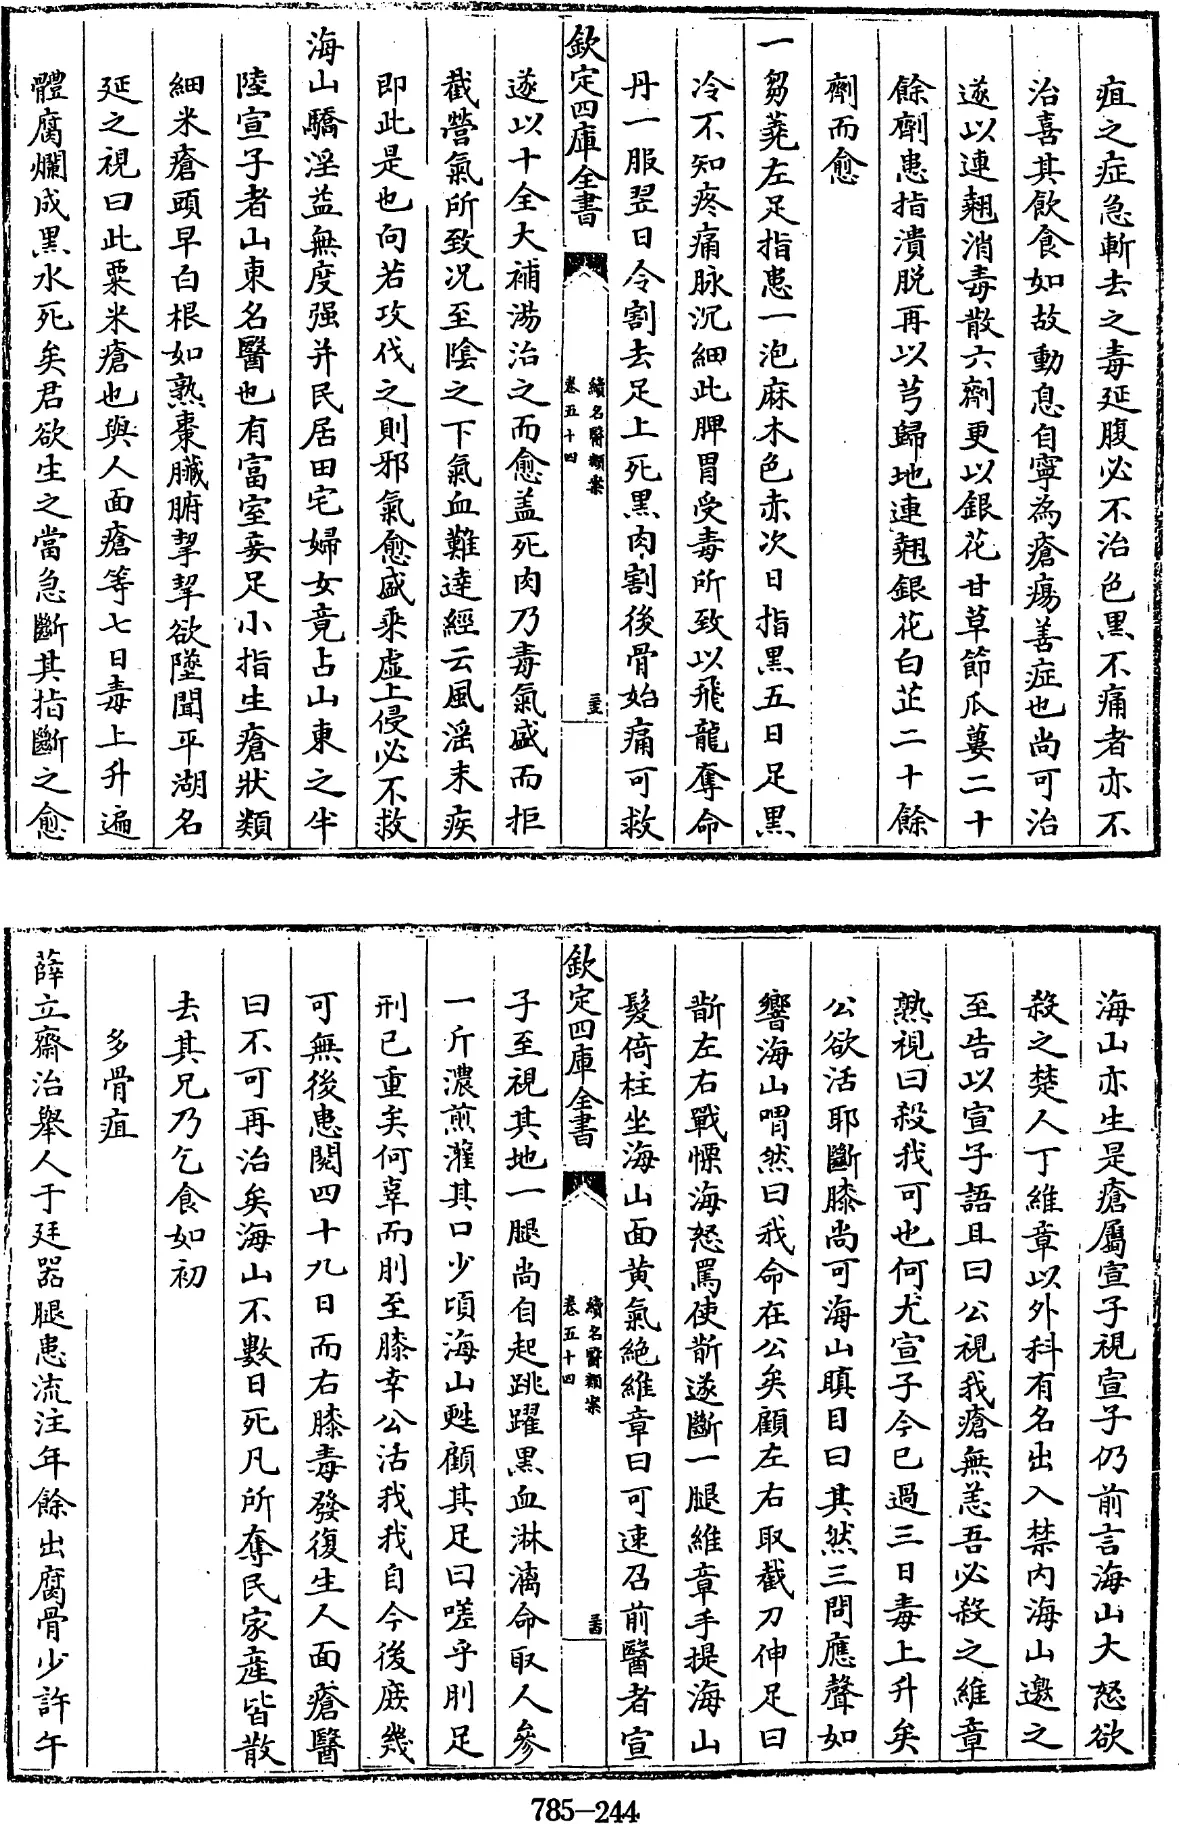 疽之症急斬去之毒延腹必不治色黒不痛者亦不
治喜其飲食如故動息自寧為瘡瘍善症也尚可治
遂以連翹消毒散六劑更以銀花甘草節瓜蔞二十
餘劑患指潰脱再以芎歸地連翹銀花白芷二十餘
劑而愈
一芻蕘左足指患一泡麻木色赤次日指黒五日足黒
冷不知疼痛脉沉細此脾胃受毒所致以飛龍奪命
丹一服翌日令割去足上死黒肉割後骨始痛可救
欽定四庫全書
續名醫類案
卷五十四
遂以十全大補湯治之而愈盖死肉乃毒氣盛而拒
截營氣所致况至陰之下氣血難達經云風淫末疾
即此是也向若攻伐之則邪氣愈盛乘虛上侵必不救
海山驕淫益無度强并民居田宅婦女竟占山東之半
陸宣子者山東名醫也有富室妾足小指生瘡狀類
細米瘡頭早白根如熟棗臟腑挈挈欲墜聞平湖名
延之視曰此粟米瘡也與人面瘡等七日毒上升遍
體腐爛成黒水死矣君欲生之當急斷其指斷之愈
海山亦生是瘡屬宣子視宣子仍前言海山大怒欲
殺之楚人丁維章以外科有名出入禁内海山邀之
至告以宣子語且曰公視我瘡無恙吾必殺之維章
熟視曰殺我可也何尤宣子今已過三日毒上升矣
公欲活耶斷膝尚可海山瞋目曰其然三問應聲如
響海山喟然曰我命在公矣顧左右取截刀伸足曰
斮左右戰慄海怒罵使斮遂斷一腿維章手提海山
髮倚柱坐海山面黄氣絶維章曰可速召前醫者宣
欽定四庫全書
續名醫類案
卷五十四
子至視其地一腿尚自起跳躍黒血淋漓命取人參
一斤濃煎灌其口少頃海山甦顧其足曰嗟乎刖足
刑已重矣何辜而刖至膝幸公活我我自今後庶幾
可無後患閱四十九日而右膝毒發復生人面瘡醫
曰不可再治矣海山不數日死凡所奪民家産皆散
去其兄乃乞食如初
多骨疽
薛立齋治舉人于廷器腿患流注年餘出腐骨少許午
785-244